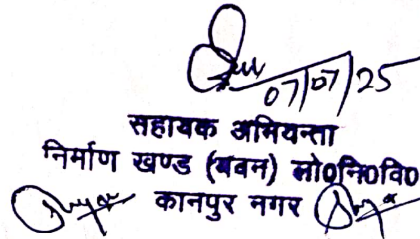 07/07/25
सहायक अभियन्ता
निर्माण खण्ड (भवन) लो0नि0वि0
कानपुर नगर